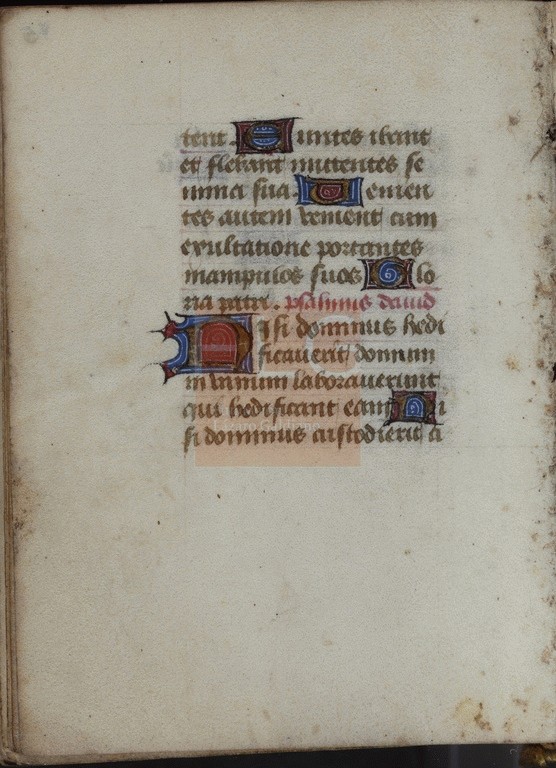 tent. Euntes ibant
et flebant mittentes se
mina sua. Uenien
tes autem venient cum
exultatione portantes
manipulos suos Glo
ria patri. psalmus dauid
Nisi dominus hedi
ficauerit domum
in vanum laborauerunt
qui hedificant eam Ni
si dominus custodierit ci
Lázaro Galdiano